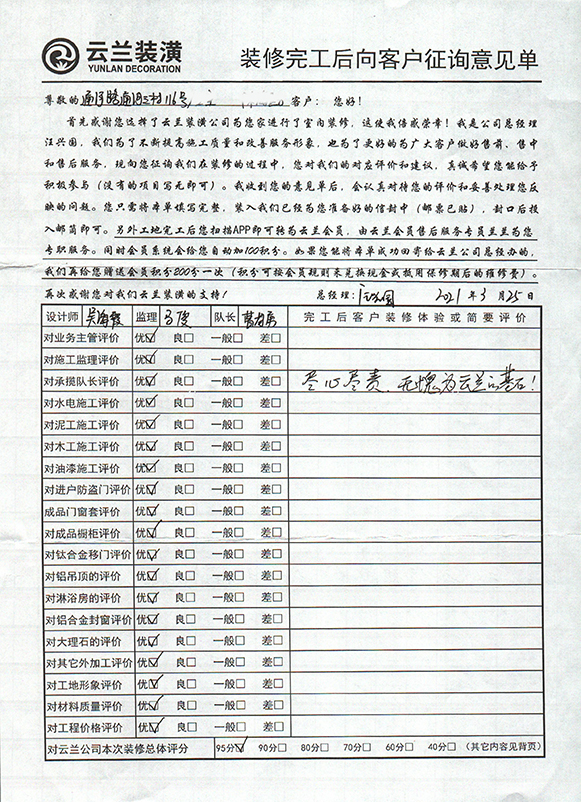 云兰装潢
YUNLAN DECORATION
装修完工后向客户征询意见单
尊敬的 116号 客户：您好！
首先感谢您选择了云兰装潢公司为您家进行了室内装修，这使我倍感荣幸！我是公司总经理
汪兴国，我们为了不断提高施工质量和改善服务形象，也为了更好的为广大客户做好售前、售中
和售后服务，现向您征询我们在装修的过程中，您对我们的对应评价和建议，真诚希望您能给予
积极参与（没有的项目写无即可）。我收到您的意见单后，会认真对待您的评价和妥善处理您反
映的问题。您只需将本单填写完整，装入我们已经为您准备好的信封中（邮票已贴），封口后投
入邮筒即可。另外工地完工后您扫描APP即可转为云兰会员，由云兰会员售后服务专员且兰为您
专职服务。同时会员系统会给您自动加100积分。如果您能将本单成功回寄给云兰公司总经办的，
我们再给您赠送会员积分200分一次（积分可按会员规则来兑换现金或抵用保修期后的维修费）。
再次感谢您对我们云兰装潢的支持！ 总经理： 2021年3月25日
设计师 吴海霞 监理 马度 队长 完工后客户装修体验或简要评价
对业务主管评价 优☑ 良□ 一般□ 差□
对施工监理评价 优☑ 良□ 一般□ 差□
对承揽队长评价 优☑ 良□ 一般□ 差□ 尽心尽责，无愧为云兰的基石！
对水电施工评价 优☑ 良□ 一般□ 差□
对泥工施工评价 优☑ 良□ 一般□ 差□
对木工施工评价 优☑ 良□ 一般□ 差□
对油漆施工评价 优☑ 良□ 一般□ 差□
对进户防盗门评价 优☑ 良□ 一般□ 差□
成品门窗套评价 优☑ 良□ 一般□ 差□
对成品橱柜评价 优☑ 良□ 一般□ 差□
对钛合金移门评价 优☑ 良□ 一般□ 差□
对铝吊顶的评价 优☑ 良□ 一般□ 差□
对淋浴房的评价 优☑ 良□ 一般□ 差□
对铝合金封窗评价 优☑ 良□ 一般□ 差□
对大理石的评价 优☑ 良□ 一般□ 差□
对其它外加工评价 优☑ 良□ 一般□ 差□
对工地形象评价 优☑ 良□ 一般□ 差□
对材料质量评价 优☑ 良□ 一般□ 差□
对工程价格评价 优☑ 良□ 一般□ 差□
对云兰公司本次装修总体评分 95分☑ 90分□ 80分□ 70分□ 60分□ 40分□ （其它内容见背页）